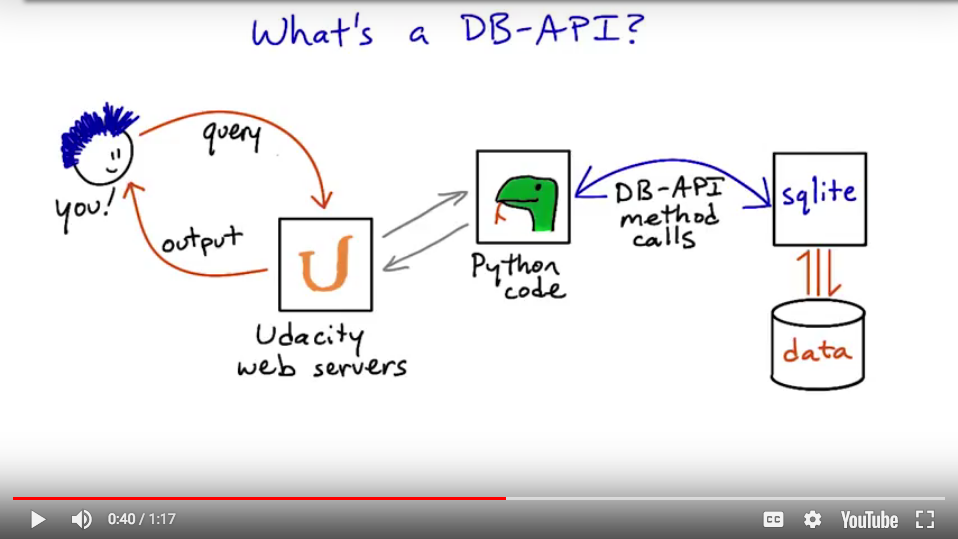 What's a DB-API?
query
you!
output
U
Udacity
web servers
Python
code
DB-API
method
calls
sqlite
data
0:40 / 1:17
CC
YouTube